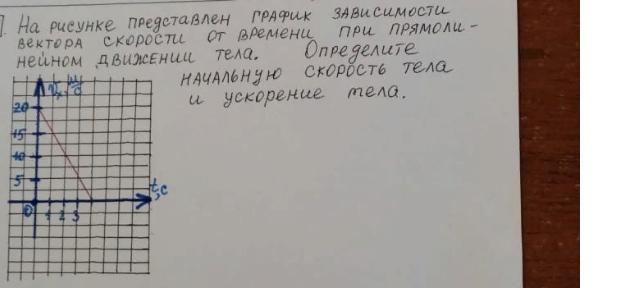 1. На рисунке представлен график зависимости
вектора скорости от времени при прямоли-
нейном движении тела. Определите
начальную скорость тела
и ускорение тела.
Vx, м/с
20
15
10
5
0 1 2 3
t, с